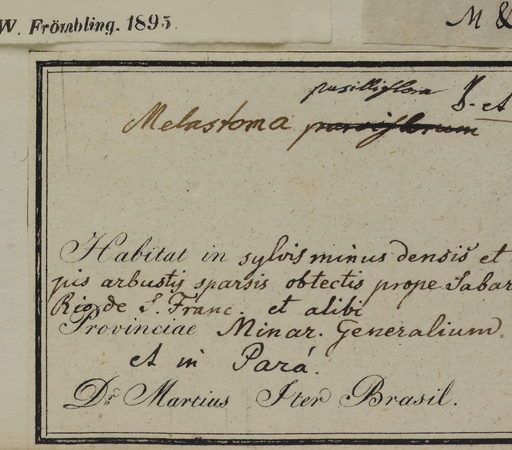 W. Frömbling. 1895.
M &
pusilliflora
Melastoma parviflorum
Habitat in sylvis minus densis et
pis arbustis sparsis obtectis prope Sabar
Rio de S. Franc. et alibi
Provinciae Minar. Generalium.
et in Pará.
Dr. Martius Iter Brasil.